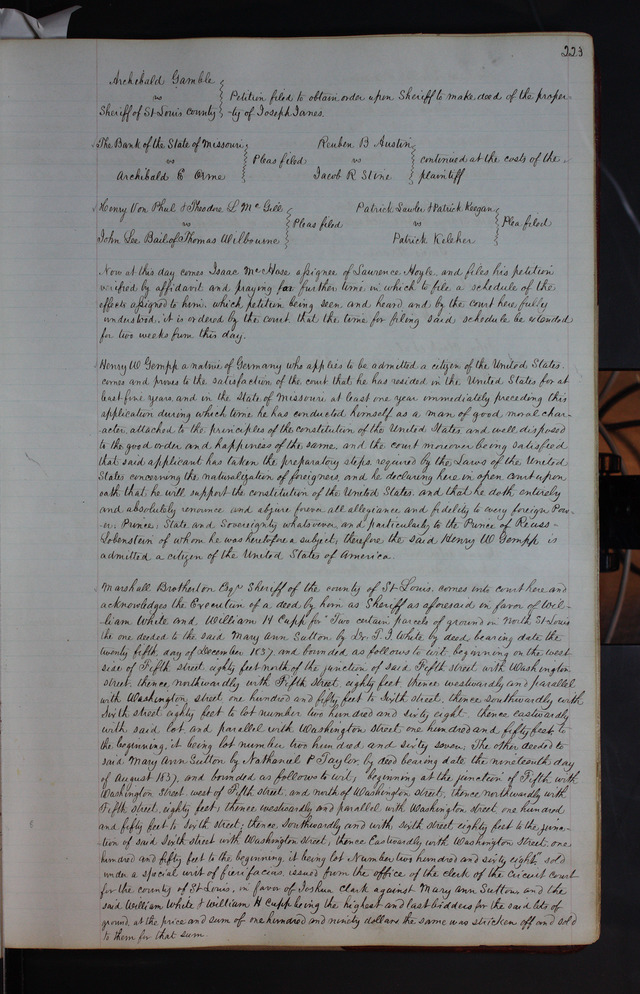 223
Archibald Gamble
vs
Sheriff of St Louis county
Petition filed to obtain order upon Sheriff to make deed of the proper-
-ty of Joseph Janes.
The Bank of the State of Missouri
vs
Archibald E Orme
Pleas filed
Reuben B Austin
vs
Jacob R Stine
continued at the costs of the
plaintiff
Henry Von Phul & Theodore L Mc Gill
vs
John Lee Bail of Thomas Wilbourne
Pleas filed
Patrick Lawler & Patrick Keegan
vs
Patrick Keleher
Plea filed
Now at this day comes Isaac Mc Hose assignee of Lawrence Hoyle and files his petition
verified by affidavit and praying for further time in which to file a schedule of the
effects assigned to him. which petition being seen and heard and by the court here fully
understood. it is ordered by the court that the time for filing said schedule be extended
for two weeks from this day.
Henry W Gempp a native of Germany who applies to be admitted a citizen of the United States.
comes and proves to the satisfaction of the court that he has resided in the United States for at
least five years and in the State of Missouri at least one year immediately preceding this
application during which time he has conducted himself as a man of good moral char-
-acter attached to the principles of the constitution of the United States and well disposed
to the good order and happiness of the same, and the court moreover being satisfied
that said applicant has taken the preparatory steps required by the Laws of the United
States concerning the naturalization of foreigners and he declaring here in open court upon
oath that he will support the constitution of the United States. and that he doth entirely
and absolutely renounce and abjure forever all allegiance and fidelity to every foreign Pow-
-er, Prince, State and Sovereignty whatsoever and particularly to the Prince of Reuss-
Lobenstein of whom he was heretofore a subject, therefore the said Henry W Gempp is
admitted a citizen of the United States of America.
Marshall Brotherton Esqr Sheriff of the county of St Louis. comes into court here and
acknowledges the Execution of a deed by him as Sheriff as aforesaid in favor of Wil-
-liam White and William H Cupp for "Two certain parcels of ground in North St Louis
the one deeded to the said Mary Ann Sutton by Dr. T. J. White by deed bearing date the
twenty fifth day of December 1837. and bounded as follows to wit, beginning on the west
side of Fifth street eighty feet north of the junction of said Fifth street with Washington
street, thence northwardly with Fifth street, eighty feet, thence westwardly and parallel
with Washington street one hundred and fifty feet to Sixth street, thence southwardly with
Sixth street eighty feet to lot number two hundred and sixty eight, thence eastwardly
with said lot and parallel with Washington street one hundred and fifty feet to
the beginning, it being lot number two hundred and sixty seven; The other deeded to
said Mary Ann Sutton by Nathaniel P Taylor, by deed bearing date the nineteenth day
of August 1837, and bounded as follows to wit; beginning at the junction of Fifth with
Washington street west of Fifth street, and north of Washington street, thence northwardly with
Fifth street, eighty feet; thence westwardly and parallel with Washington street one hundred
and fifty feet to Sixth street; thence Southwardly and with Sixth street eighty feet to the junc-
-tion of said Sixth street with Washington street; thence Eastwardly with Washington street, one
hundred and fifty feet to the beginning it being lot Number two hundred and sixty eight." sold
under a special writ of fieri facias, issued from the office of the clerk of the Circuit Court
for the county of St Louis, in favor of Joshua Clark against Mary Ann Sutton and the
said William White & William H Cupp being the highest and last bidders for the said lots of
ground, at the price and sum of one hundred and ninety dollars the same was stricken off and sold
to them for that sum